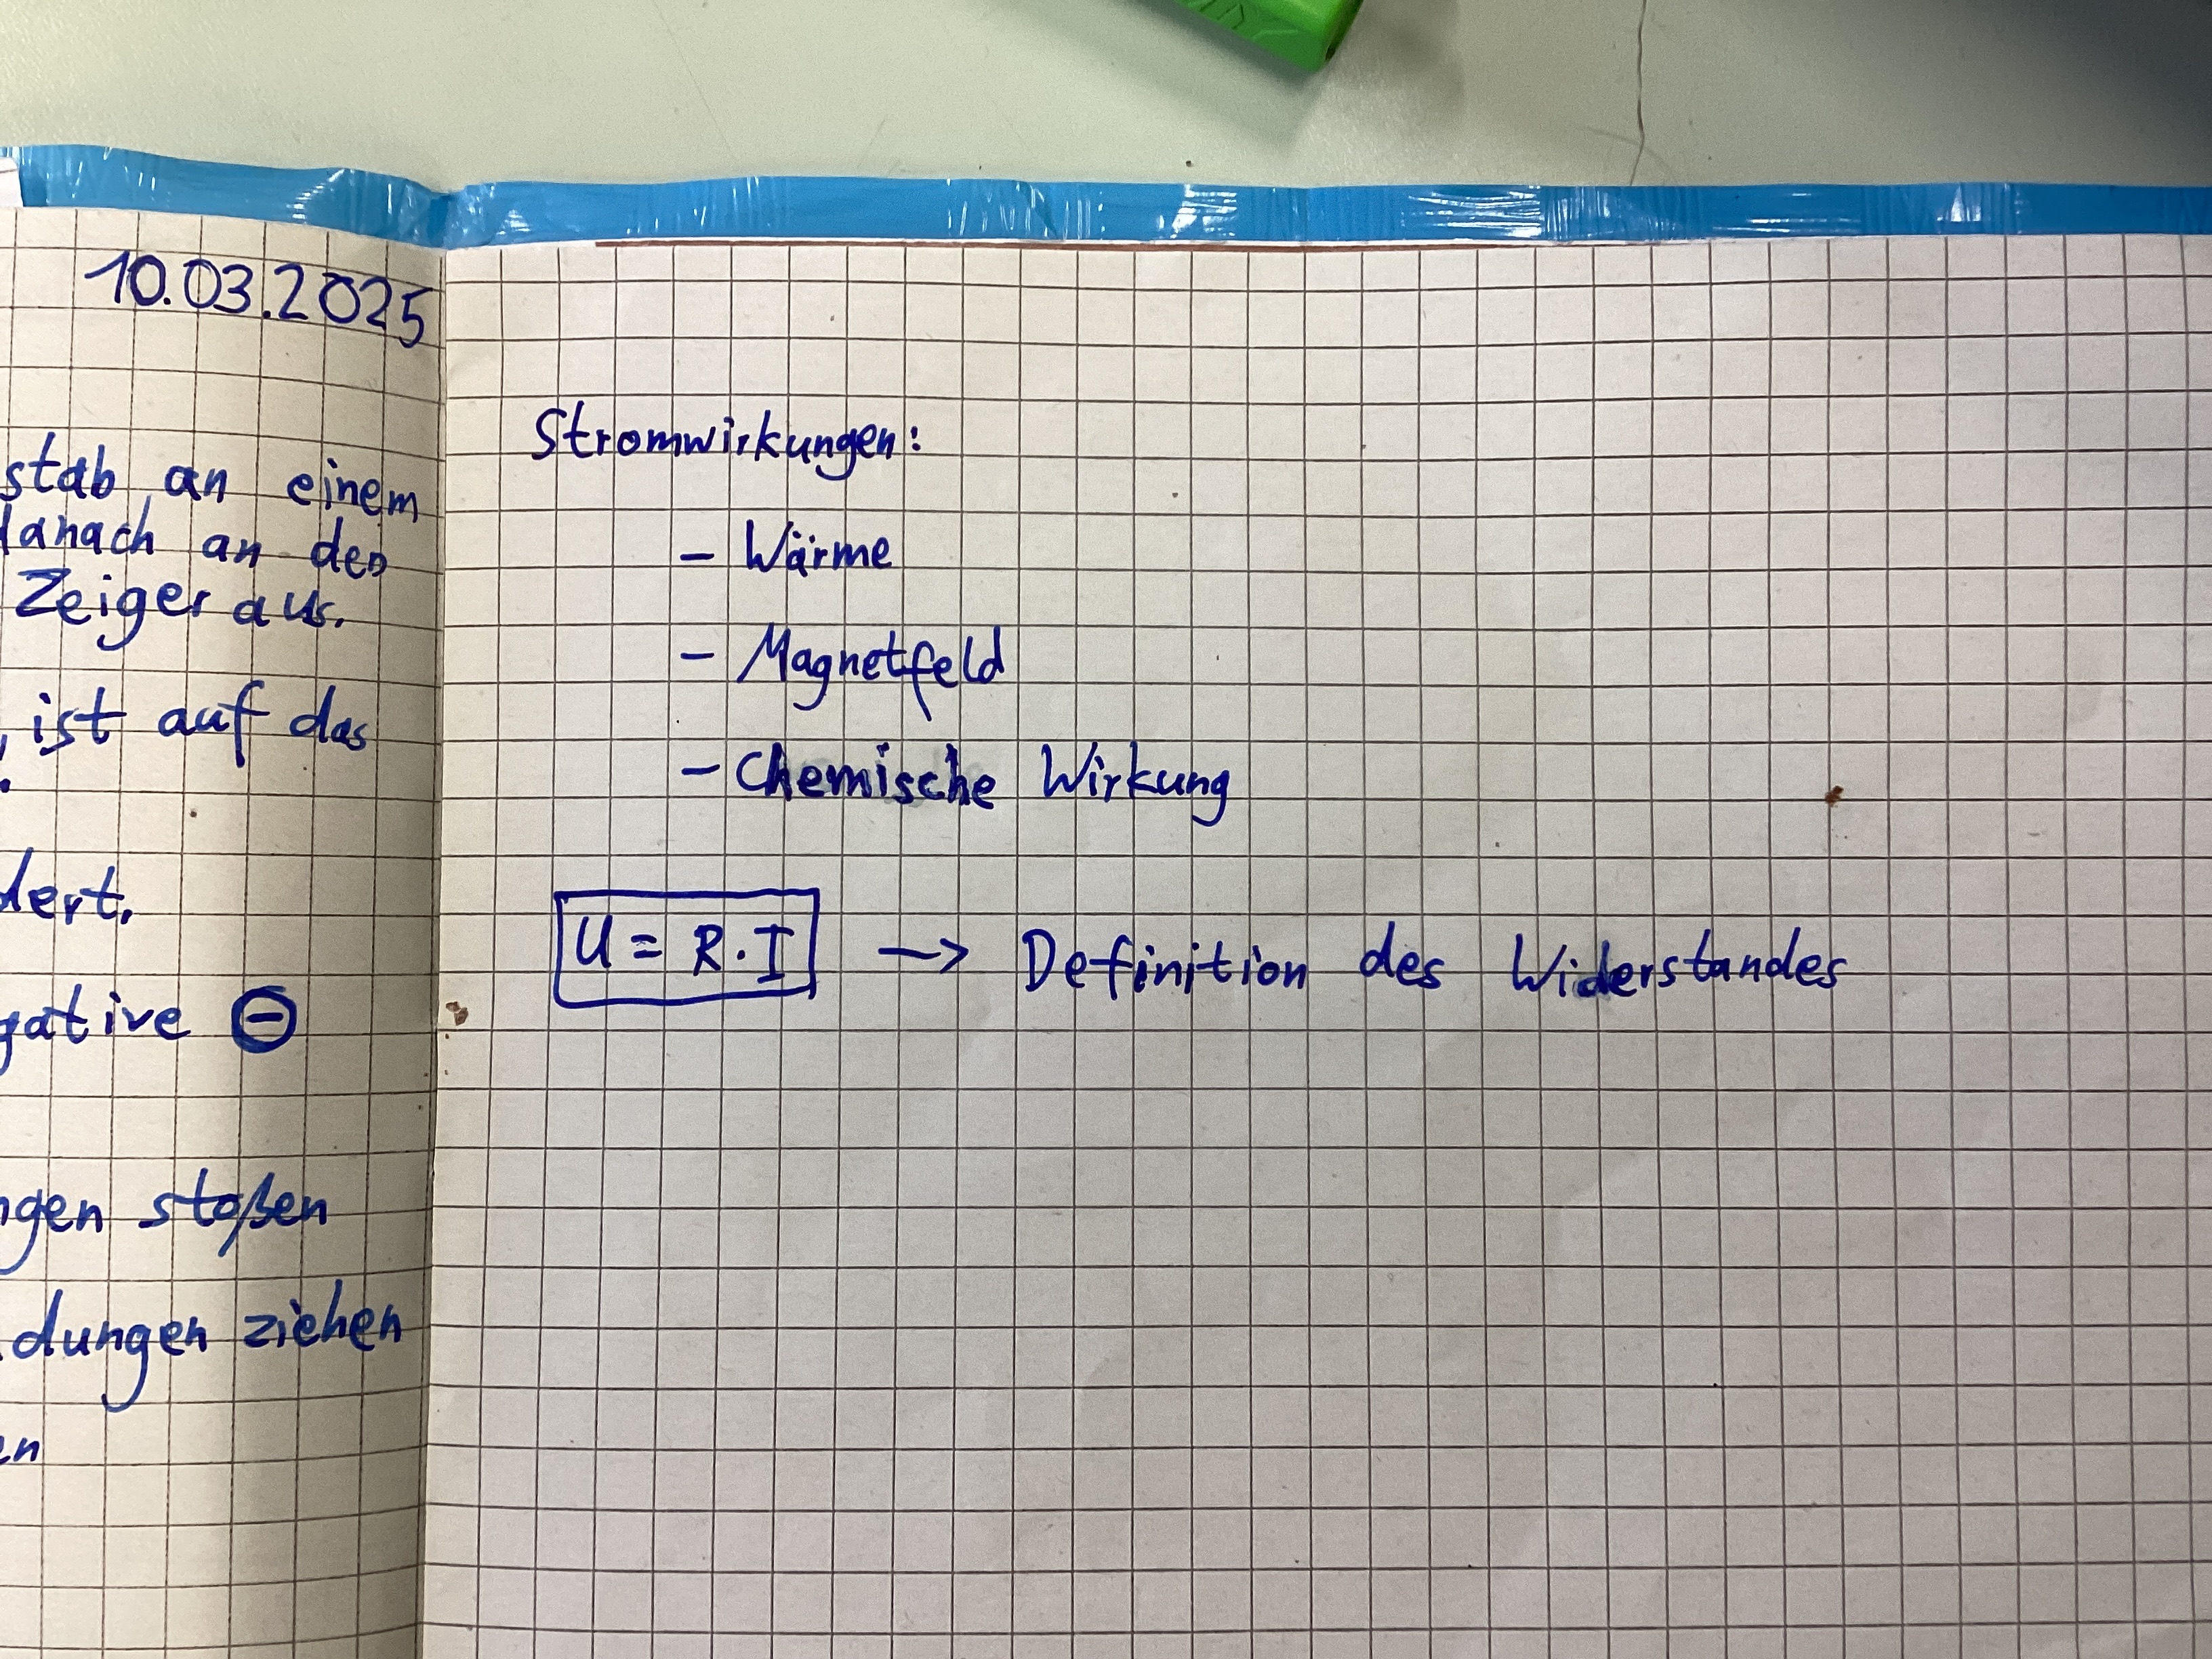 10.03.2025
stab an einem
danach an den
Zeiger aus.
, ist auf das
dert.
gative ⊖
ngen stoßen
dungen ziehen
en
Stromwirkungen:
- Wärme
- Magnetfeld
- Chemische Wirkung
U = R·I → Definition des Widerstandes